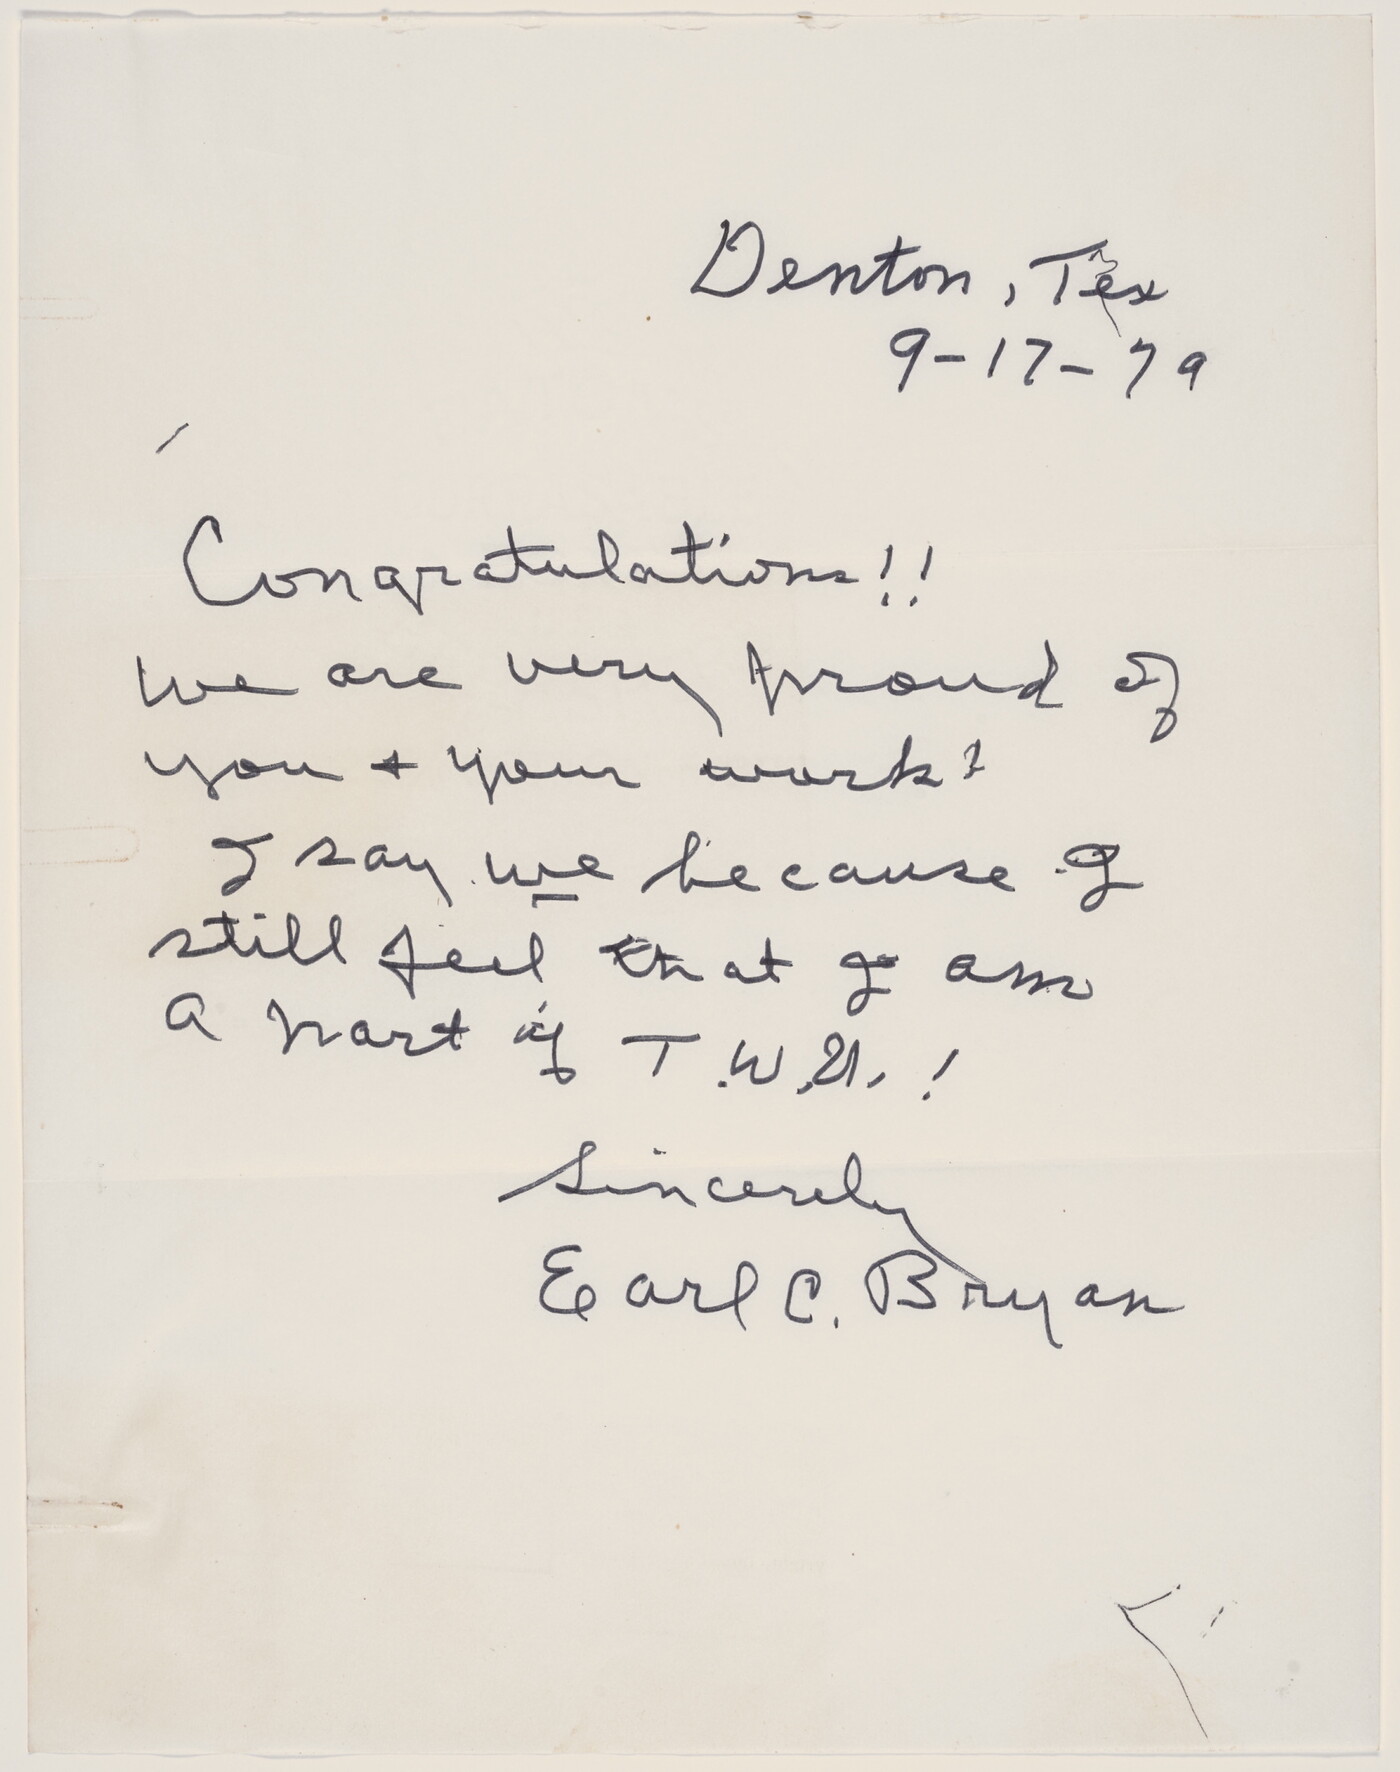 Denton, Tex
9-17-79
Congratulations!!
We are very proud of
you + your work!
I say we because I
still feel that I am
a part of T.W.U.!
Sincerely
Earl C. Bryan